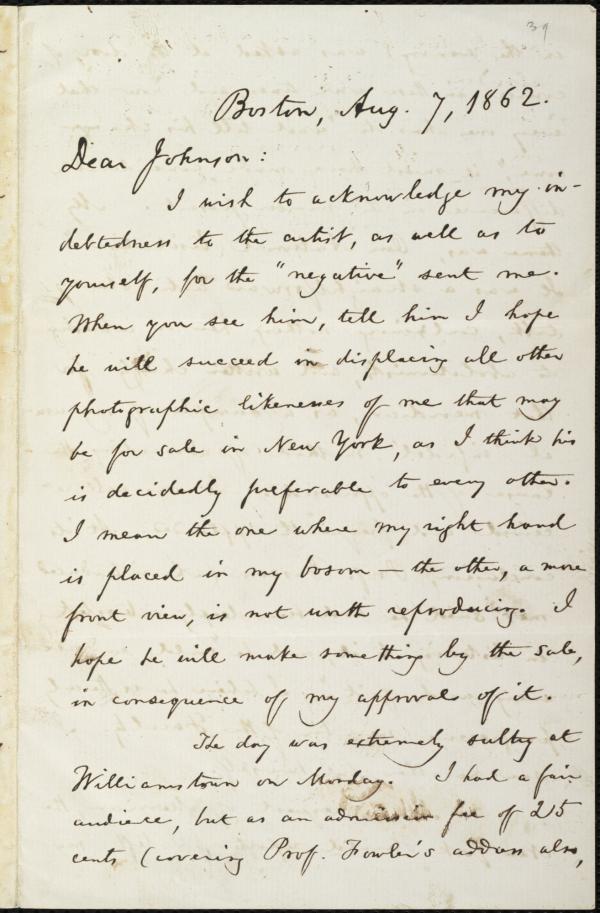 39
Boston, Aug. 7, 1862.
Dear Johnson:
I wish to acknowledge my in-
debtedness to the artist, as well as to
yourself, for the "negative" sent me.
When you see him, tell him I hope
he will succeed in displacing all other
photographic likenesses of me that may
be for sale in New York, as I think his
is decidedly preferable to every other.
I mean the one where my right hand
is placed in my bosom — the other, a more
front view, is not worth reproducing. I
hope he will make something by the sale,
in consequence of my approval of it.
The day was extremely sultry at
Williamstown on Monday. I had a fair
audience, but as an admission fee of 25
cents (covering Prof. Fowler's address also,